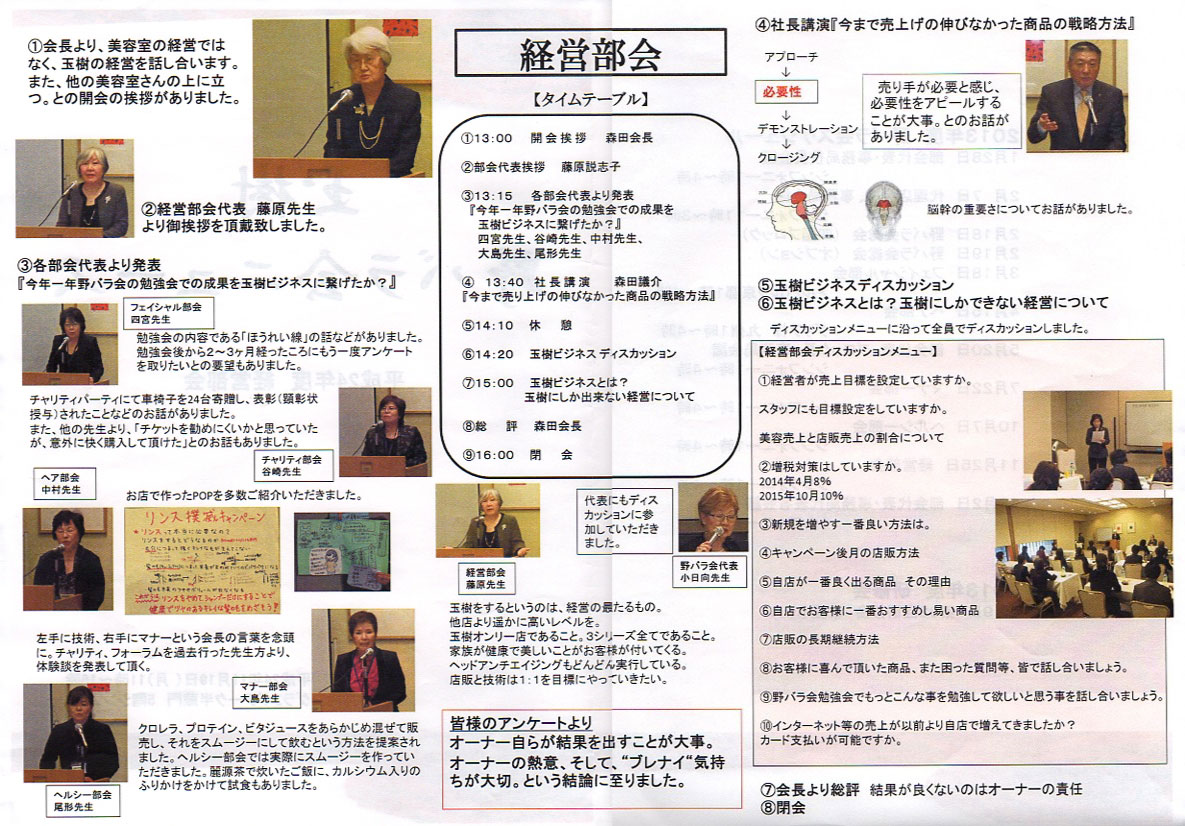 ①会長より、美容室の経営では
なく、玉樹の経営を話し合います。
また、他の美容室さんの上に立
つ。との開会の挨拶がありました。
②経営部会代表 藤原先生
より御挨拶を頂戴致しました。
③各部会代表より発表
『今年一年野バラ会の勉強会での成果を玉樹ビジネスに繋げたか?』
フェイシャル部会
四宮先生
勉強会の内容である「ほうれい線」の話などがありました。
勉強会後から2~3ヶ月経ったころにもう一度アンケート
を取りたいとの要望もありました。
チャリティパーティにて車椅子を24台寄贈し、表彰(顕彰状
授与)されたことなどのお話がありました。
また、他の先生より、「チケットを勧めにくいかと思っていた
が、意外に快く購入して頂けた」とのお話もありました。
チャリティ部会
谷崎先生
ヘア部会
中村先生
お店で作ったPOPを多数ご紹介いただきました。
リンス撲滅キャンペーン
左手に技術、右手にマナーという会長の言葉を念頭
に。チャリティ、フォーラムを過去行った先生方より、
体験談を発表して頂く。
マナー部会
大島先生
クロレラ、プロテイン、ビタジュースをあらかじめ混ぜて販
売し、それをスムージーにして飲むという方法を提案され
ました。ヘルシー部会では実際にスムージーを作ってい
ただきました。麗源茶で炊いたご飯に、カルシウム入りの
ふりかけをかけて試食もありました。
ヘルシー部会
尾形先生
経営部会
【タイムテーブル】
①13:00 開会挨拶 森田会長
②部会代表挨拶 藤原説志子
③13:15 各部会代表より発表
『今年一年野バラ会の勉強会での成果を
玉樹ビジネスに繋げたか?』
四宮先生、谷崎先生、中村先生、
大島先生、尾形先生
④ 13:40 社長講演 森田議介
『今まで売り上げの伸びなかった商品の戦略方法』
⑤14:10 休 憩
⑥14:20 玉樹ビジネス ディスカッション
⑦15:00 玉樹ビジネスとは?
玉樹にしか出来ない経営について
⑧総 評 森田会長
⑨16:00 閉 会
経営部会
藤原先生
代表にもディス
カッションに参
加していただき
ました。
野バラ会代表
小日向先生
玉樹をするというのは、経営の最たるもの。
他店より遥かに高いレベルを。
玉樹オンリー店であること。3シリーズ全てであること。
家族が健康で美しいことがお客様が付いてくる。
ヘッドアンチエイジングもどんどん実行している。
店販と技術は1:1を目標にやっていきたい。
皆様のアンケートより
オーナー自らが結果を出すことが大事。
オーナーの熱意、そして、“ブレナイ“気持
ちが大切。という結論に至りました。
④社長講演『今まで売上げの伸びなかった商品の戦略方法』
アプローチ
↓
必要性
↓
デモンストレーション
↓
クロージング
売り手が必要と感じ、
必要性をアピールする
ことが大事。とのお話が
ありました。
脳幹の重要さについてお話がありました。
⑤玉樹ビジネスディスカッション
⑥玉樹ビジネスとは?玉樹にしかできない経営について
ディスカッションメニューに沿って全員でディスカッションしました。
【経営部会ディスカッションメニュー】
①経営者が売上目標を設定していますか。
スタッフにも目標設定をしていますか。
美容売上と店販売上の割合について
②増税対策はしていますか。
2014年4月8%
2015年10月10%
③新規を増やす一番良い方法は。
④キャンペーン後月の店販方法
⑤自店が一番良く出る商品 その理由
⑥自店でお客様に一番おすすめし易い商品
⑦店販の長期継続方法
⑧お客様に喜んで頂いた商品、また困った質問等、皆で話し合いましょう。
⑨野バラ会勉強会でもっとこんな事を勉強して欲しいと思う事を話し合いましょう。
⑩インターネット等の売上が以前より自店で増えてきましたか?
カード支払いが可能ですか。
⑦会長より総評 結果が良くないのはオーナーの責任
⑧閉会